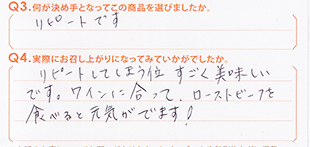 Q3.何が決め手となってこの商品を選びましたか。
リピートです
Q4.実際にお召し上がりになってみていかがでしたか。
リピートしてしまう位 すごく美味しい
です。ワインに合って、ローストビーフを
食べると元気がでます!